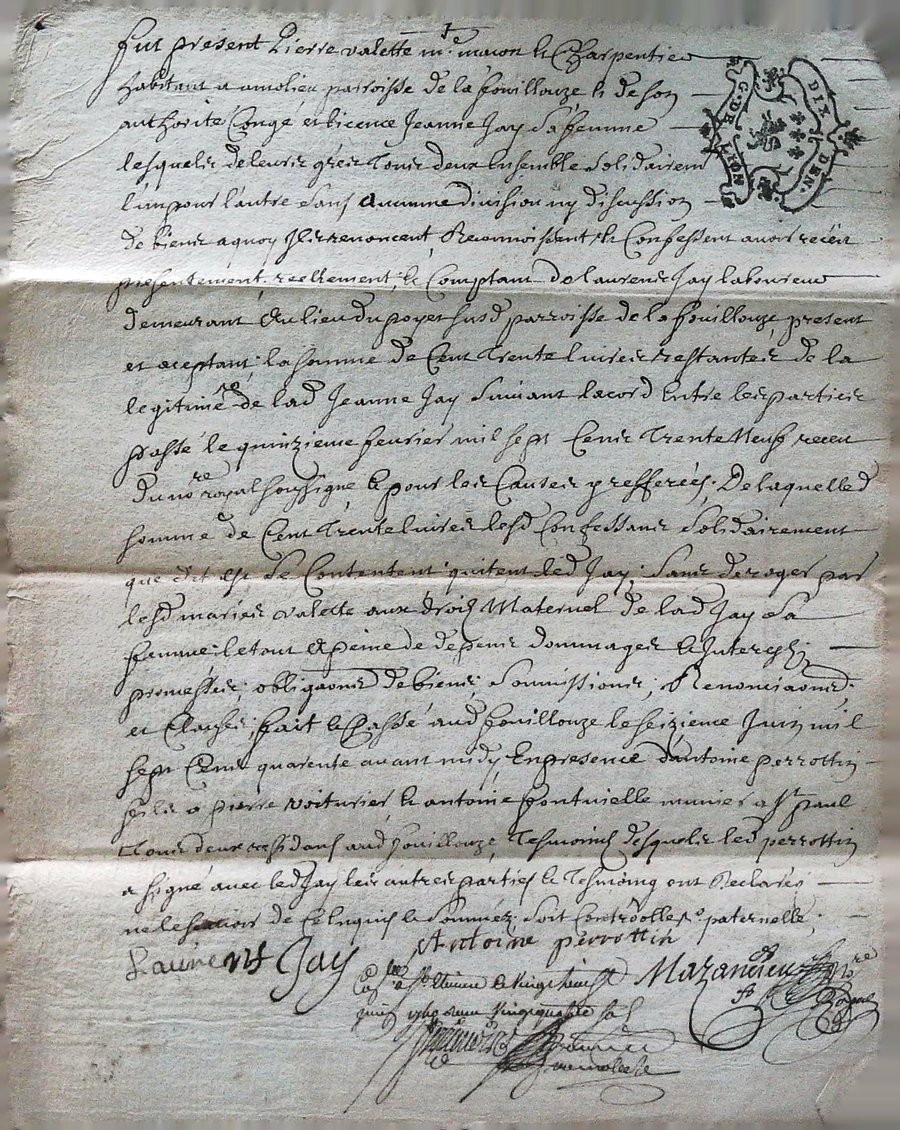 fut present Pierre valette mre macon & Charpentier
habitant a amolieu parroisse de la fouillouze & de son
authorité Congé et licence Jeanne Jay sa femme
lesquels de leurs grés tous deux Ensemble solidairemt
l'un pour l'autre sans aucunne division ny discussion
de biens a quoy Ils renoncent, Reconnoissent & Confessent avoir receu
presentement, reellement, & Comptant de laurens Jay laboureur
demeurant au lieu du poyet susd parroisse de la fouillouze, present
et aceptant, la somme de Cent Trente livres restantes de la
legitime de lad Jeanne Jay suivant lacord Entre les parties
passé le quinzieme fevrier mil sept Cens Trente Neuf receu
du nore royal soussigné & pour les Causes y refferées, De laquelle d
somme de Cent Trente livres lesd Confessans solidairement
que dit est se Contentent quitent led Jay, sans deroger par
lesd mariés valette aux droits Maternel de lad Jay sa
femme, le tout a peine de depens dommages & Interests
promesses, obligaons de biens, soumissions, Renonciaons
et Clauses, fait & Passé aud fouillouze le seizieme Juin mil
sept Cens quarente avant midy En presence d'antoine perrottin
fils a pierre voiturier & antoine munier a St paul
Tous deux residans aud fouillouze, Tesmoins desquels led perrottin
a signé avec led Jay les autres parties & Tesmoing ont Declarés
ne le scavoir de Ce Enquis & sommés. soit Controolle paternelle.
Laurens Jay
Antoine perrottin
Mazandieu nore Royal
G. DE LYON
DIX DEN.